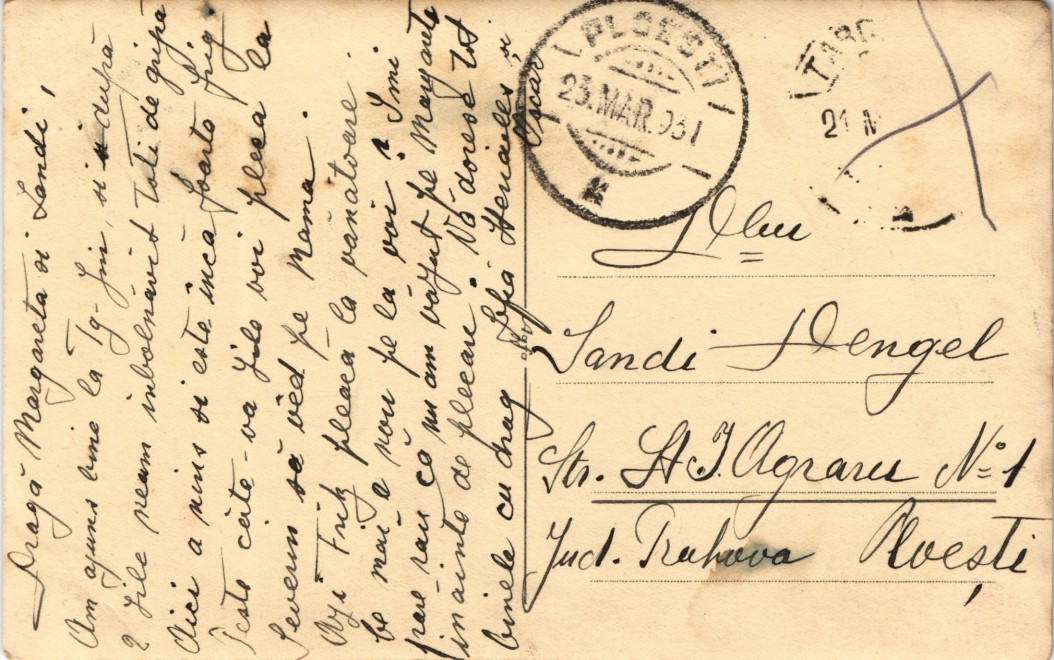 Dragă Margareta si Sandi,
Am ajuns bine la Tg-Jiu, si după
2 zile neam imbolnăvit toti de gripă
Aici a nins si este incă foarte frig
Peste câte-va zile voi pleca la
Severin să văd pe Mama.
Azi Fritz pleacă la vanatoare.
pe la voi? Imi
pare rau că nu am văzut pe Margareta
inainte de plecare. Vă doresc tot
binele cu drag Sofia si
Oscar
PLOESTI
23.MAR.931
TARG
21 M
Dlui
Sandi Dengel
Str. St. I. Agraru No 1
Jud. Prahova Ploești